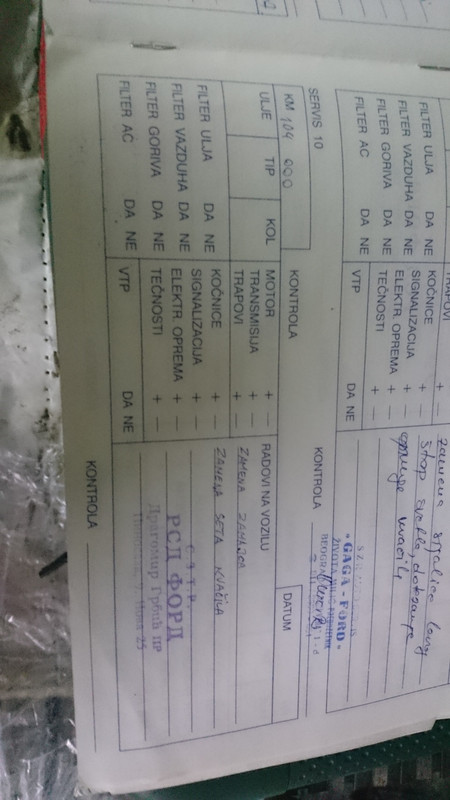 FILTER ULJA DA NE
FILTER VAZDUHA DA NE
FILTER GORIVA DA NE
FILTER AC DA NE
KOČNICE + —
SIGNALIZACIJA + —
ELEKTR. OPREMA + —
TEČNOSTI + —
VTP DA NE
zamena sijalice
stop svetla
opruge
"GAGA - FORD"
KONTROLA
SERVIS 10
KONTROLA
DATUM
KM 104 000
ULJE TIP KOL
MOTOR + —
TRANSMISIJA + —
TRAPOVI + —
RADOVI NA VOZILU
ZAMENA
ZAMENA SETA KVAČILA
FILTER ULJA DA NE
FILTER VAZDUHA DA NE
FILTER GORIVA DA NE
FILTER AC DA NE
KOČNICE + —
SIGNALIZACIJA + —
ELEKTR. OPREMA + —
TEČNOSTI + —
VTP DA NE
РСД ФОРД
Драгомир Грбић ПР
KONTROLA